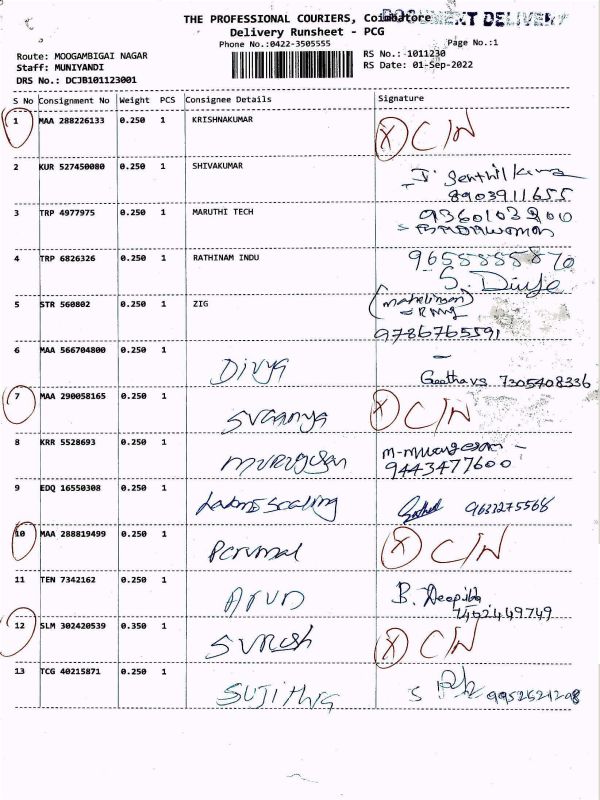 THE PROFESSIONAL COURIERS, Coimbatore
DOCUMENT DELIVERY
Delivery Runsheet - PCG
Phone No.:0422-3505555
Page No.:1
Route: MOOGAMBIGAI NAGAR
RS No.: 1011230
Staff: MUNIYANDI
RS Date: 01-Sep-2022
DRS No.: DCJB101123001
S No Consignment No Weight PCS Consignee Details Signature
1 MAA 288226133 0.250 1 KRISHNAKUMAR X C/N
2 KUR 527450080 0.250 1 SHIVAKUMAR J. Senthil Kumar
8903911655
3 TRP 4977975 0.250 1 MARUTHI TECH
4 TRP 6826326 0.250 1 RATHINAM INDU
S. Divya
5 STR 560802 0.250 1 ZIG
9786765591
6 MAA 566704800 0.250 1 Divya Geetha vs 7305408336
7 MAA 290058165 0.250 1 X C/N
8 KRR 5528693 0.250 1 murugesan
9443477600
9 EDQ 16550308 0.250 1 9633275568
10 MAA 288819499 0.250 1 Perumal X C/N
11 TEN 7342162 0.250 1 Arun B. Deepika
7452449749
12 SLM 302420539 0.350 1 Suresh X C/N
13 TCG 40215871 0.250 1 Sujitha S